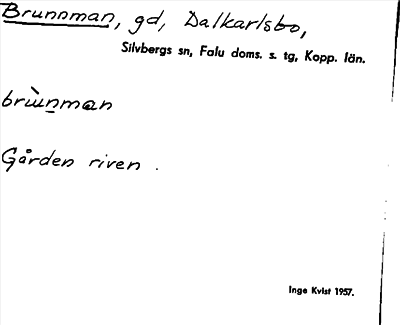 Brunnman, gd, Dalkarlsbo,
Silvbergs sn, Falu doms. s. tg, Kopp. län.
brùnman
Gården riven.
Inge Kvist 1957.